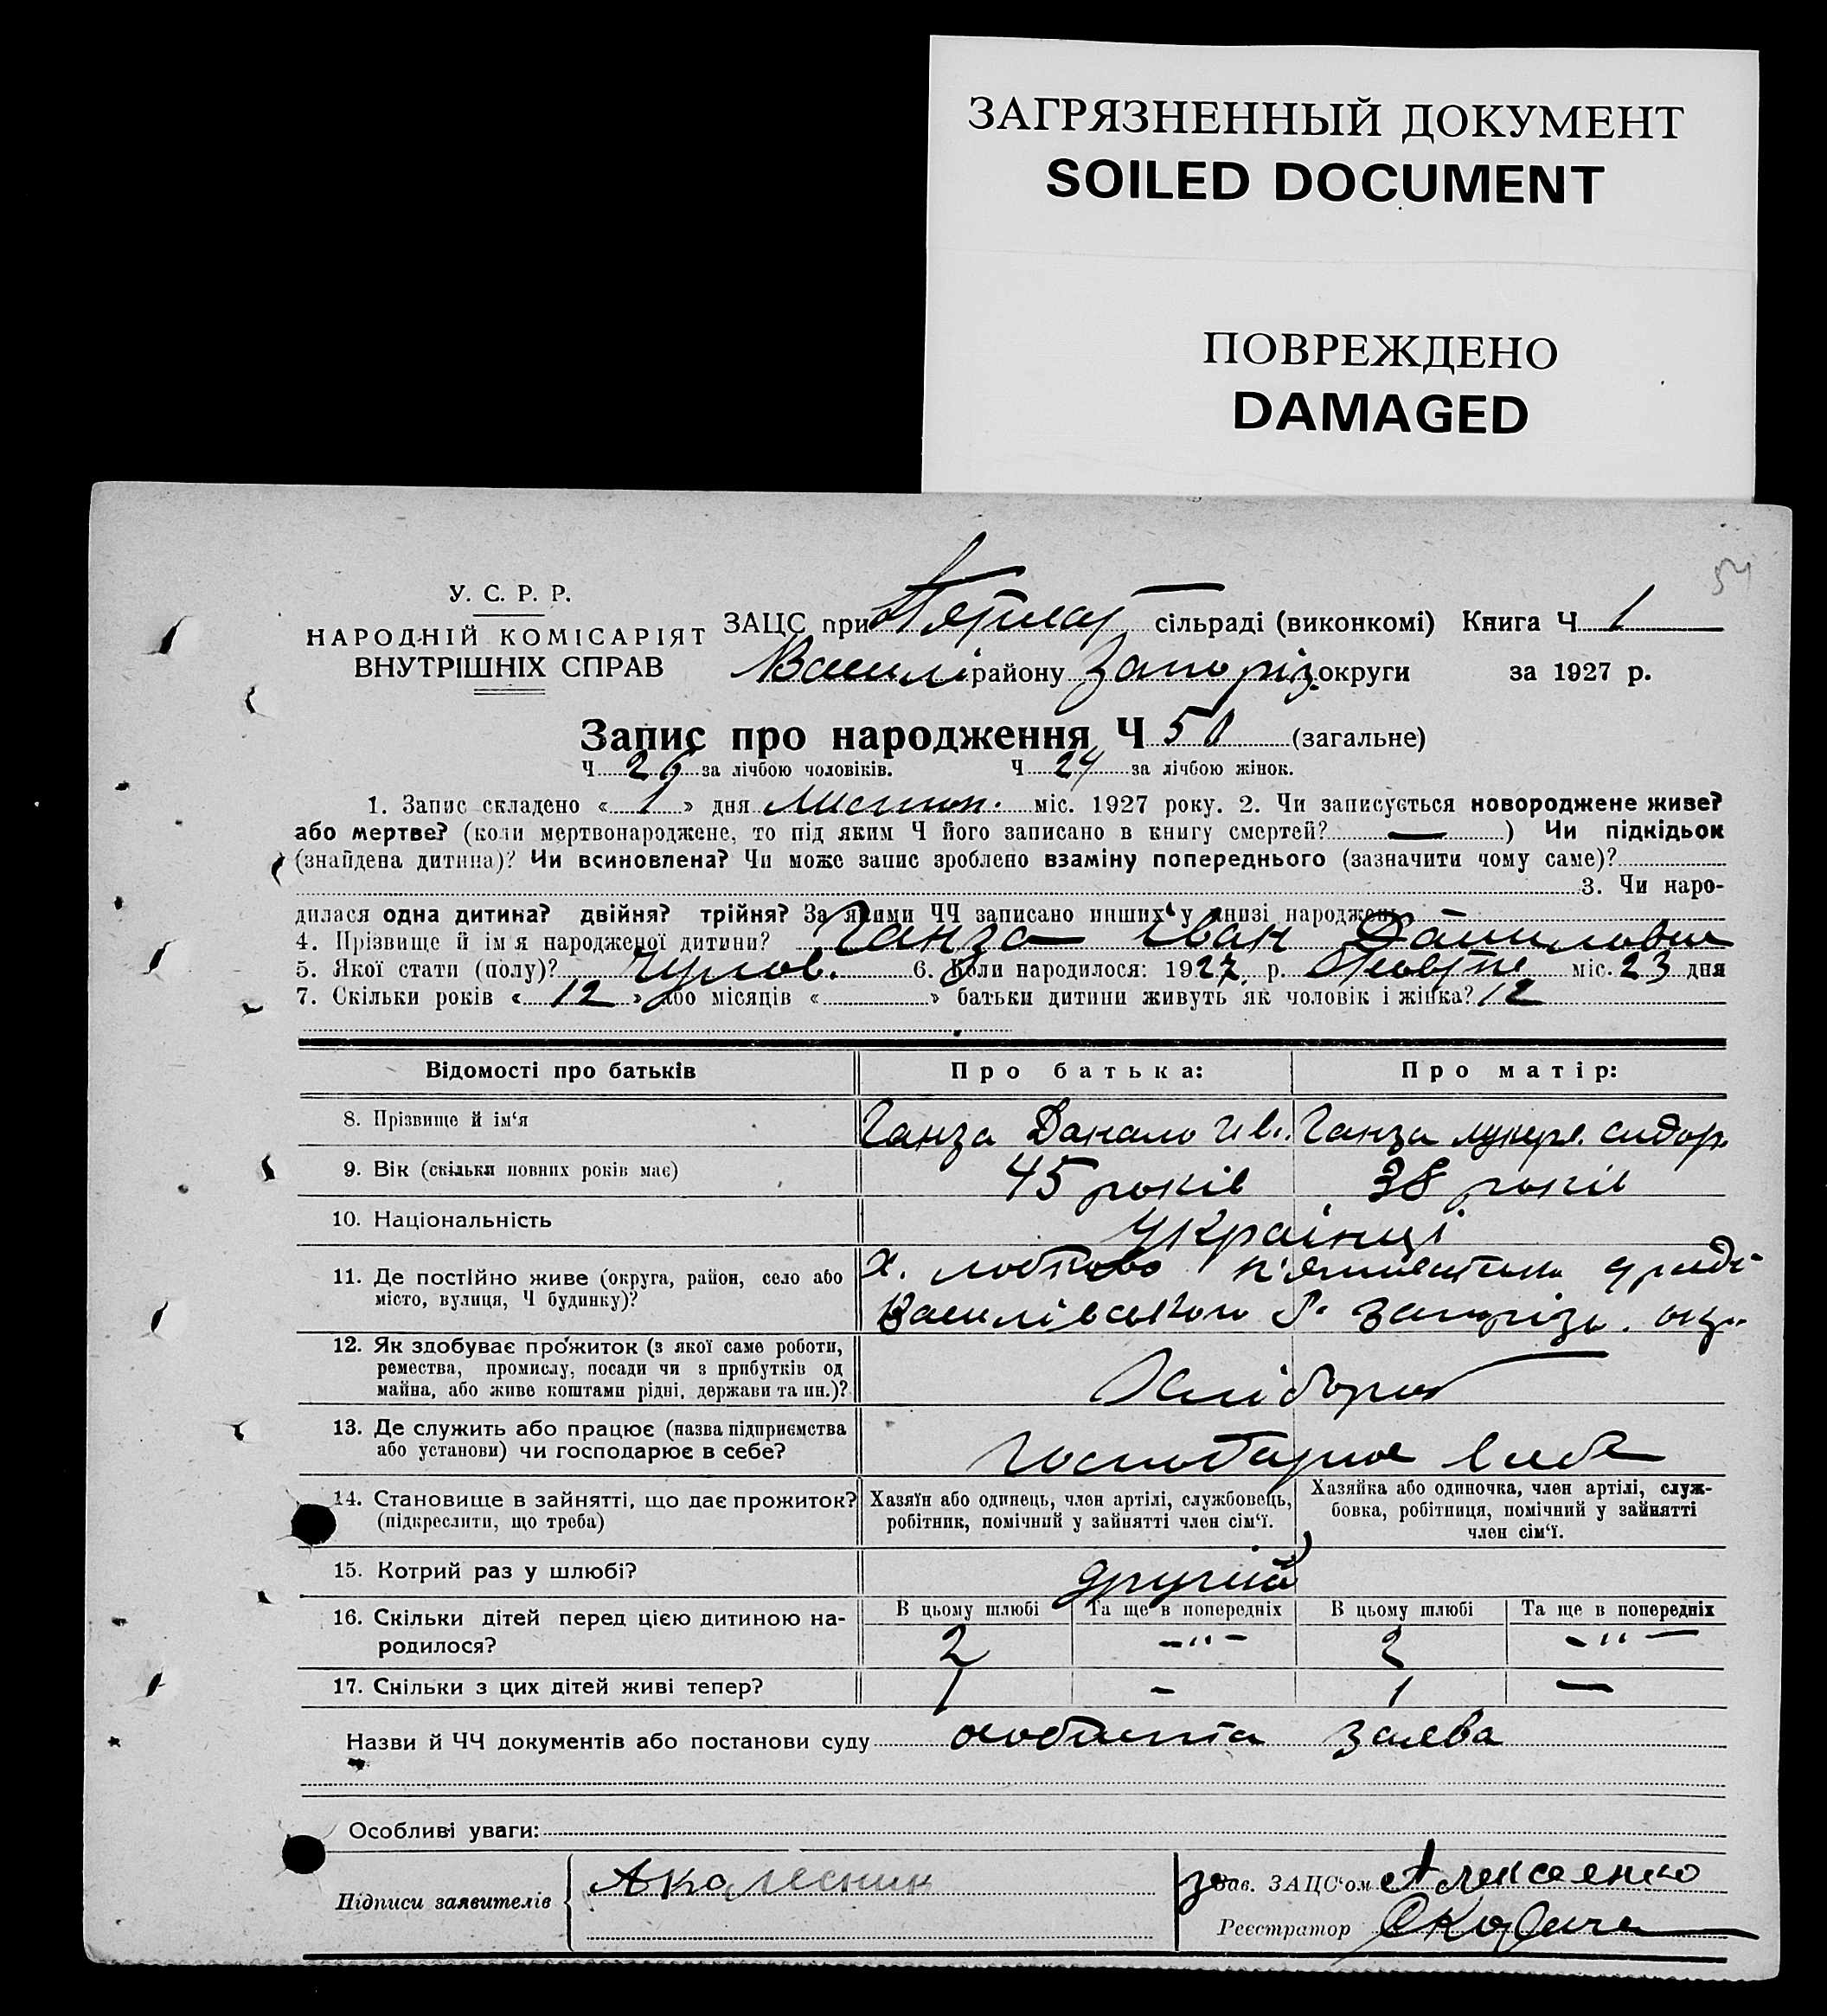 ЗАГРЯЗНЕННЫЙ ДОКУМЕНТ
SOILED DOCUMENT
ПОВРЕЖДЕНО
DAMAGED
54
У. С. Р. Р.
НАРОДНІЙ КОМІСАРІЯТ
ВНУТРІШНІХ СПРАВ
ЗАЦС при сільраді (виконкомі) Книга Ч 1
Василі району Запоріз. округи за 1927 р.
Запис про народження Ч 50 (загальне)
Ч 26 за лічбою чоловіків. Ч 24 за лічбою жінок.
1. Запис складено « 1 » дня Листоп. міс. 1927 року. 2. Чи записується новороджене живе?
або мертве? (коли мертвонароджене, то під яким Ч його записано в книгу смертей? — ) Чи підкідьок
(знайдена дитина)? Чи всиновлена? Чи може запис зроблено взаміну попереднього (зазначити чому саме)?
3. Чи наро-
дилася одна дитина? двійня? трійня? За якими ЧЧ записано инших у книзі народжень
4. Прізвище й ім'я народженої дитини? Ганза Іван Данилович
5. Якої стати (полу)? Чолов. 6. Коли народилося: 1927 р. Жовтня міс. 23 дня
7. Скільки років « 12 » або місяців « » батьки дитини живуть як чоловік і жінка? 12
Відомості про батьків Про батька: Про матір:
8. Прізвище й ім'я Ганза Данало Ів. Ганза Лукер. Сидор.
9. Вік (скільки повних років має) 45 років 38 років
10. Національність Українці
11. Де постійно живе (округа, район, село або
місто, вулиця, Ч будинку)? Х.
Василівського Р. Запоріз. окр.
12. Як здобуває прожиток (з якої саме роботи,
ремества, промислу, посади чи з прибутків од
майна, або живе коштами рідні, держави та ин.)? Хлібороб
13. Де служить або працює (назва підприємства
або установи) чи господарює в себе? Господарює в себе
14. Становище в зайнятті, що дає прожиток?
(підкреслити, що треба)
Хазяїн або одинець, член артілі, службовець,
робітник, помічний у зайнятті член сім'ї.
Хазяйка або одиночка, член артілі, служ-
бовка, робітниця, помічний у зайнятті
член сім'ї.
15. Котрий раз у шлюбі? другий
16. Скільки дітей перед цією дитиною на-
родилося?
В цьому шлюбі Та ще в попередніх В цьому шлюбі Та ще в попередніх
2 -"- 2 -"-
17. Скільки з цих дітей живі тепер? 1 - 1 —
Назви й ЧЧ документів або постанови суду особиста заява
Особливі уваги:
Підписи заявителів А Колесник
за Зав. ЗАЦС'ом Алексеенко
Реєстратор